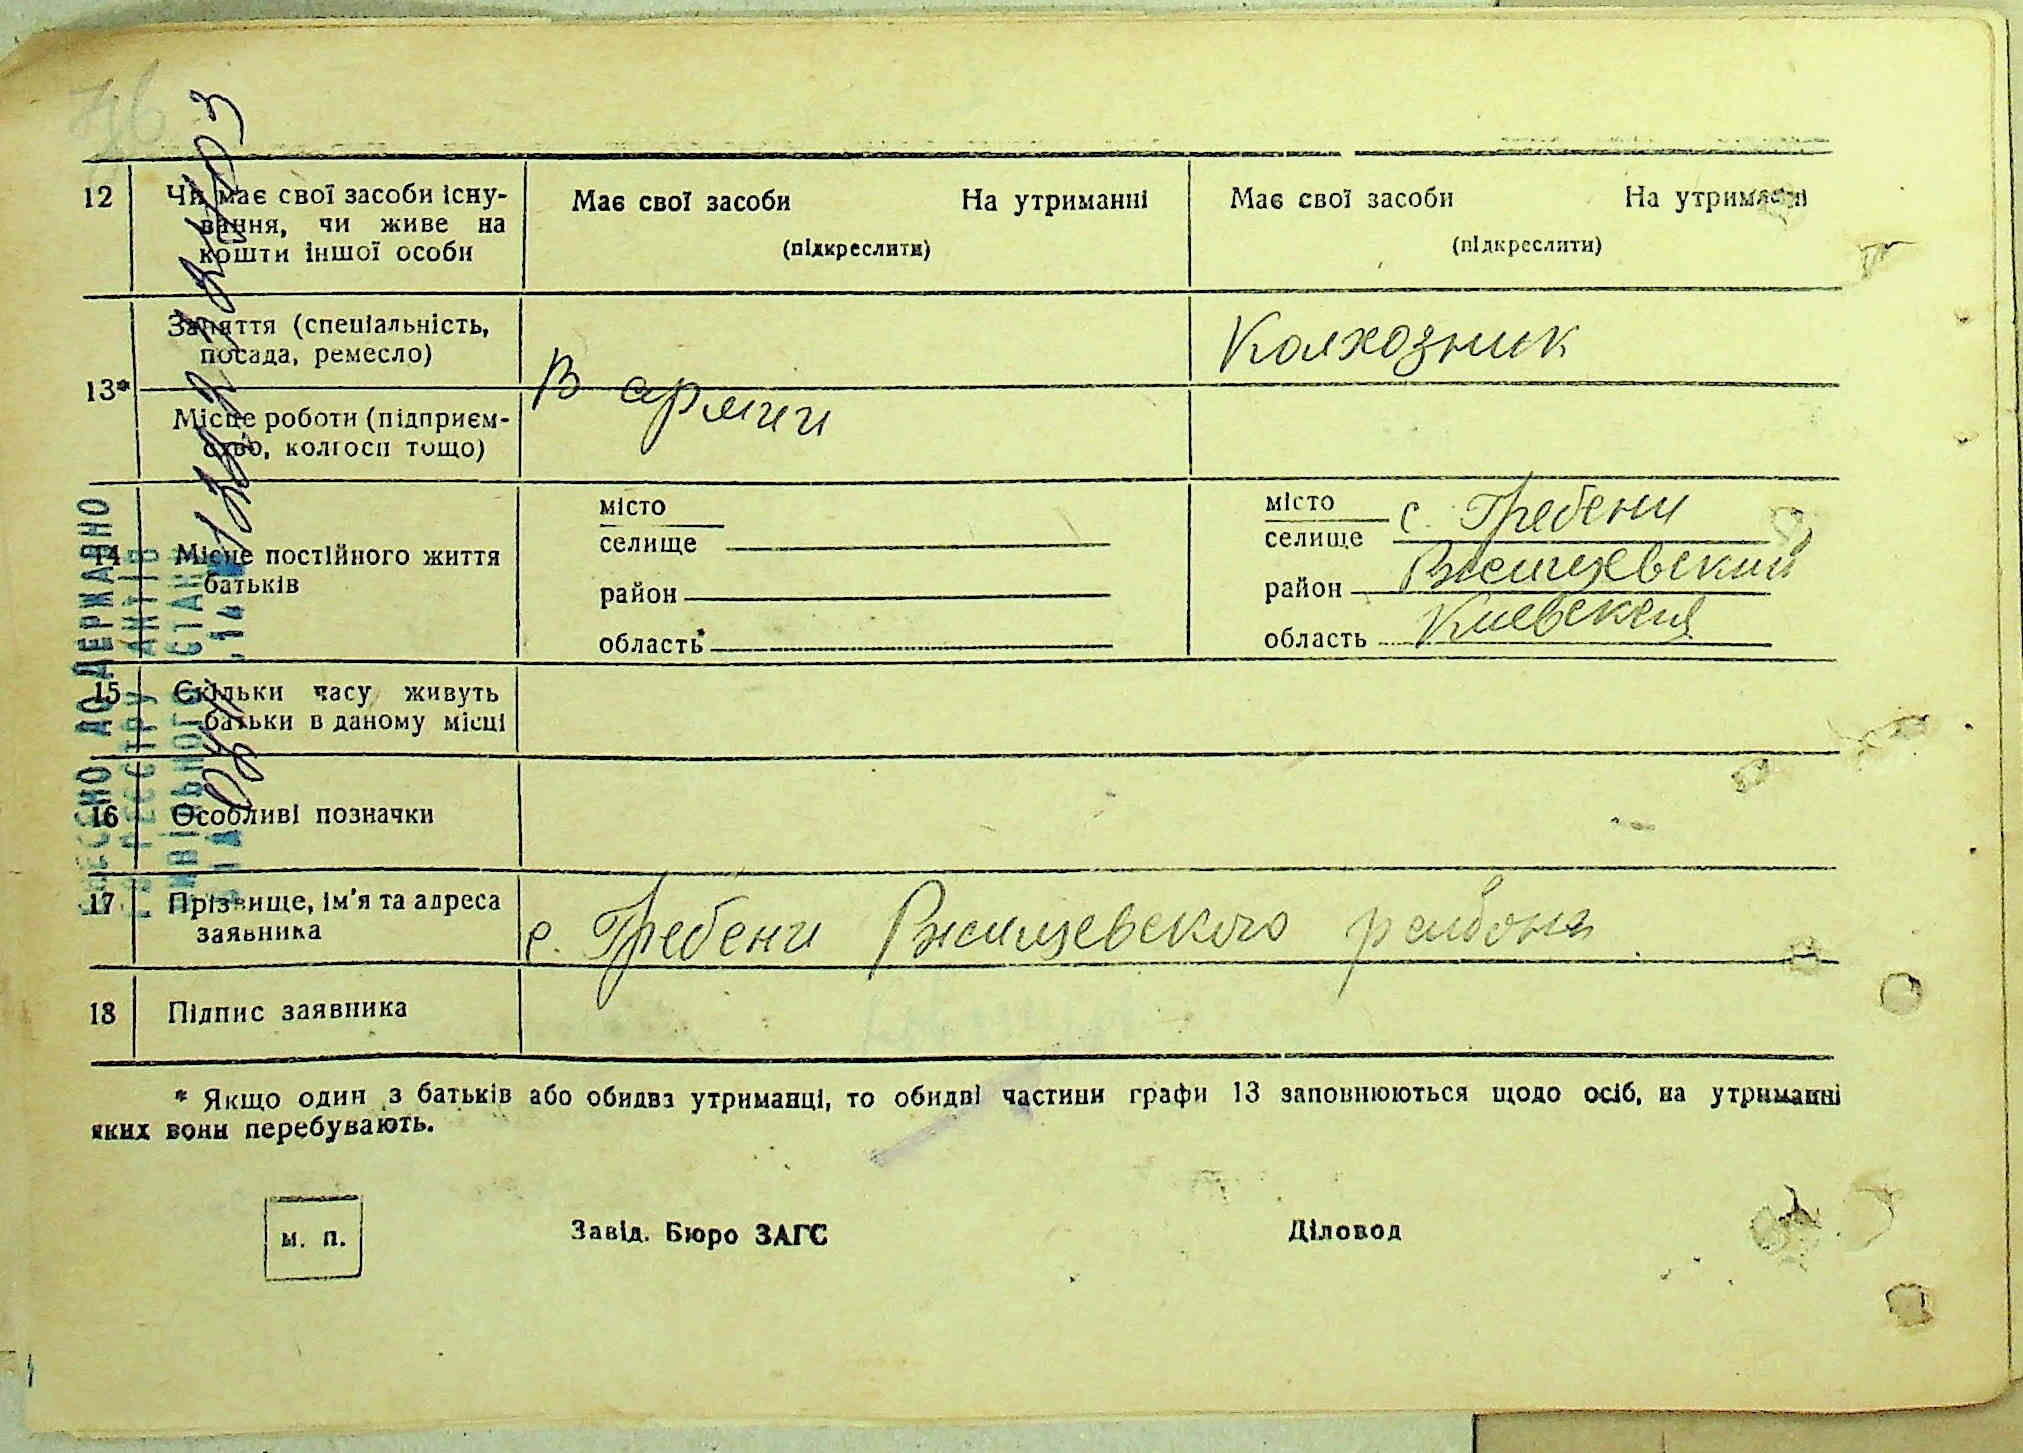 12 Чи має свої засоби існу- Має свої засоби На утриманні Має свої засоби На утриманні
вання, чи живе на
кошти іншої особи (підкреслити) (підкреслити)
Заняття (спеціальність, Колхозник
посада, ремесло)
13* В армии
Місце роботи (підприєм-
ство, колгосп тощо)
місто місто с. Гребени
селище селище
14 Місце постійного життя
батьків
район район Ржищевский
область область Киевская
15 Скільки часу живуть
батьки в даному місці
16 Особливі позначки
17 Прізвище, ім'я та адреса
заявника с. Гребени Ржищевского района
18 Підпис заявника
* Якщо один з батьків або обидва утриманці, то обидві частини графи 13 заповнюються щодо осіб, на утриманні
яких вони перебувають.
м. п. Завід. Бюро ЗАГС Діловод
ВНЕСЕНО ДО ДЕРЖАВНО
ГО РЕЄСТРУ АКТІВ
СТАНУ